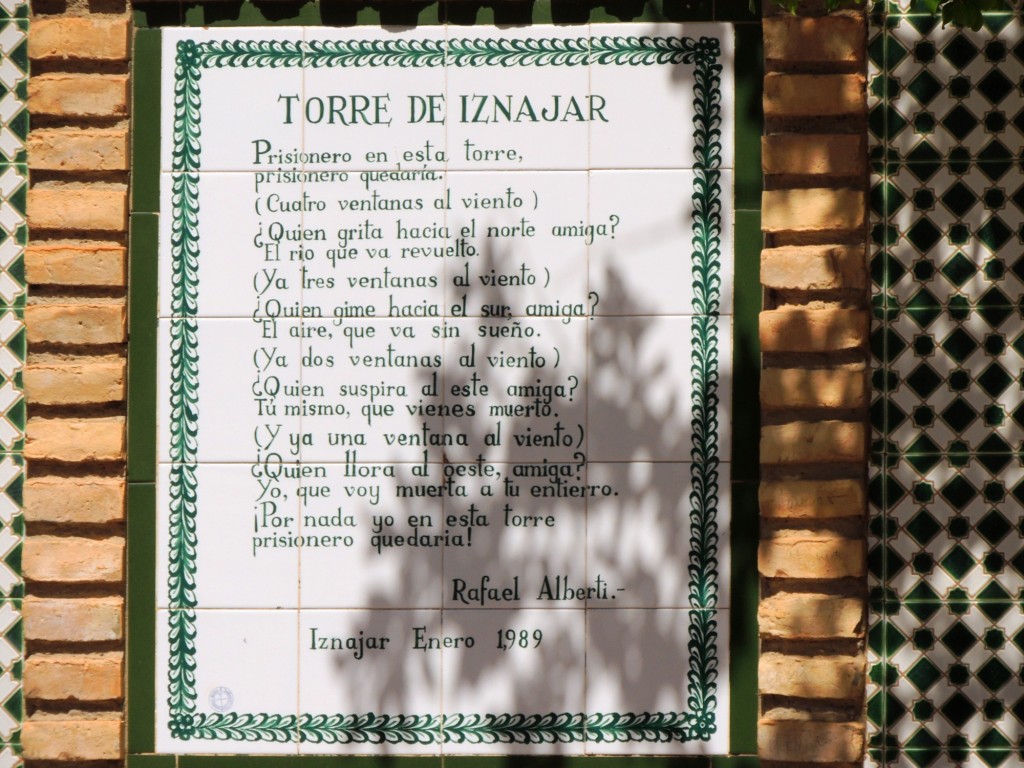 TORRE DE IZNAJAR
Prisionero en esta torre,
prisionero quedaría.
(Cuatro ventanas al viento)
¿Quien grita hacia el norte amiga?
El rio que va revuelto.
(Ya tres ventanas al viento)
¿Quien gime hacia el sur, amiga?
El aire, que va sin sueño.
(Ya dos ventanas al viento)
¿Quien suspira al este amiga?
Tú mismo, que vienes muerto.
(Y ya una ventana al viento)
¿Quien llora al oeste, amiga?
Yo, que voy muerta a tu entierro.
¡Por nada yo en esta torre
prisionero quedaria!
Rafael Alberti.-
Iznajar Enero 1,989